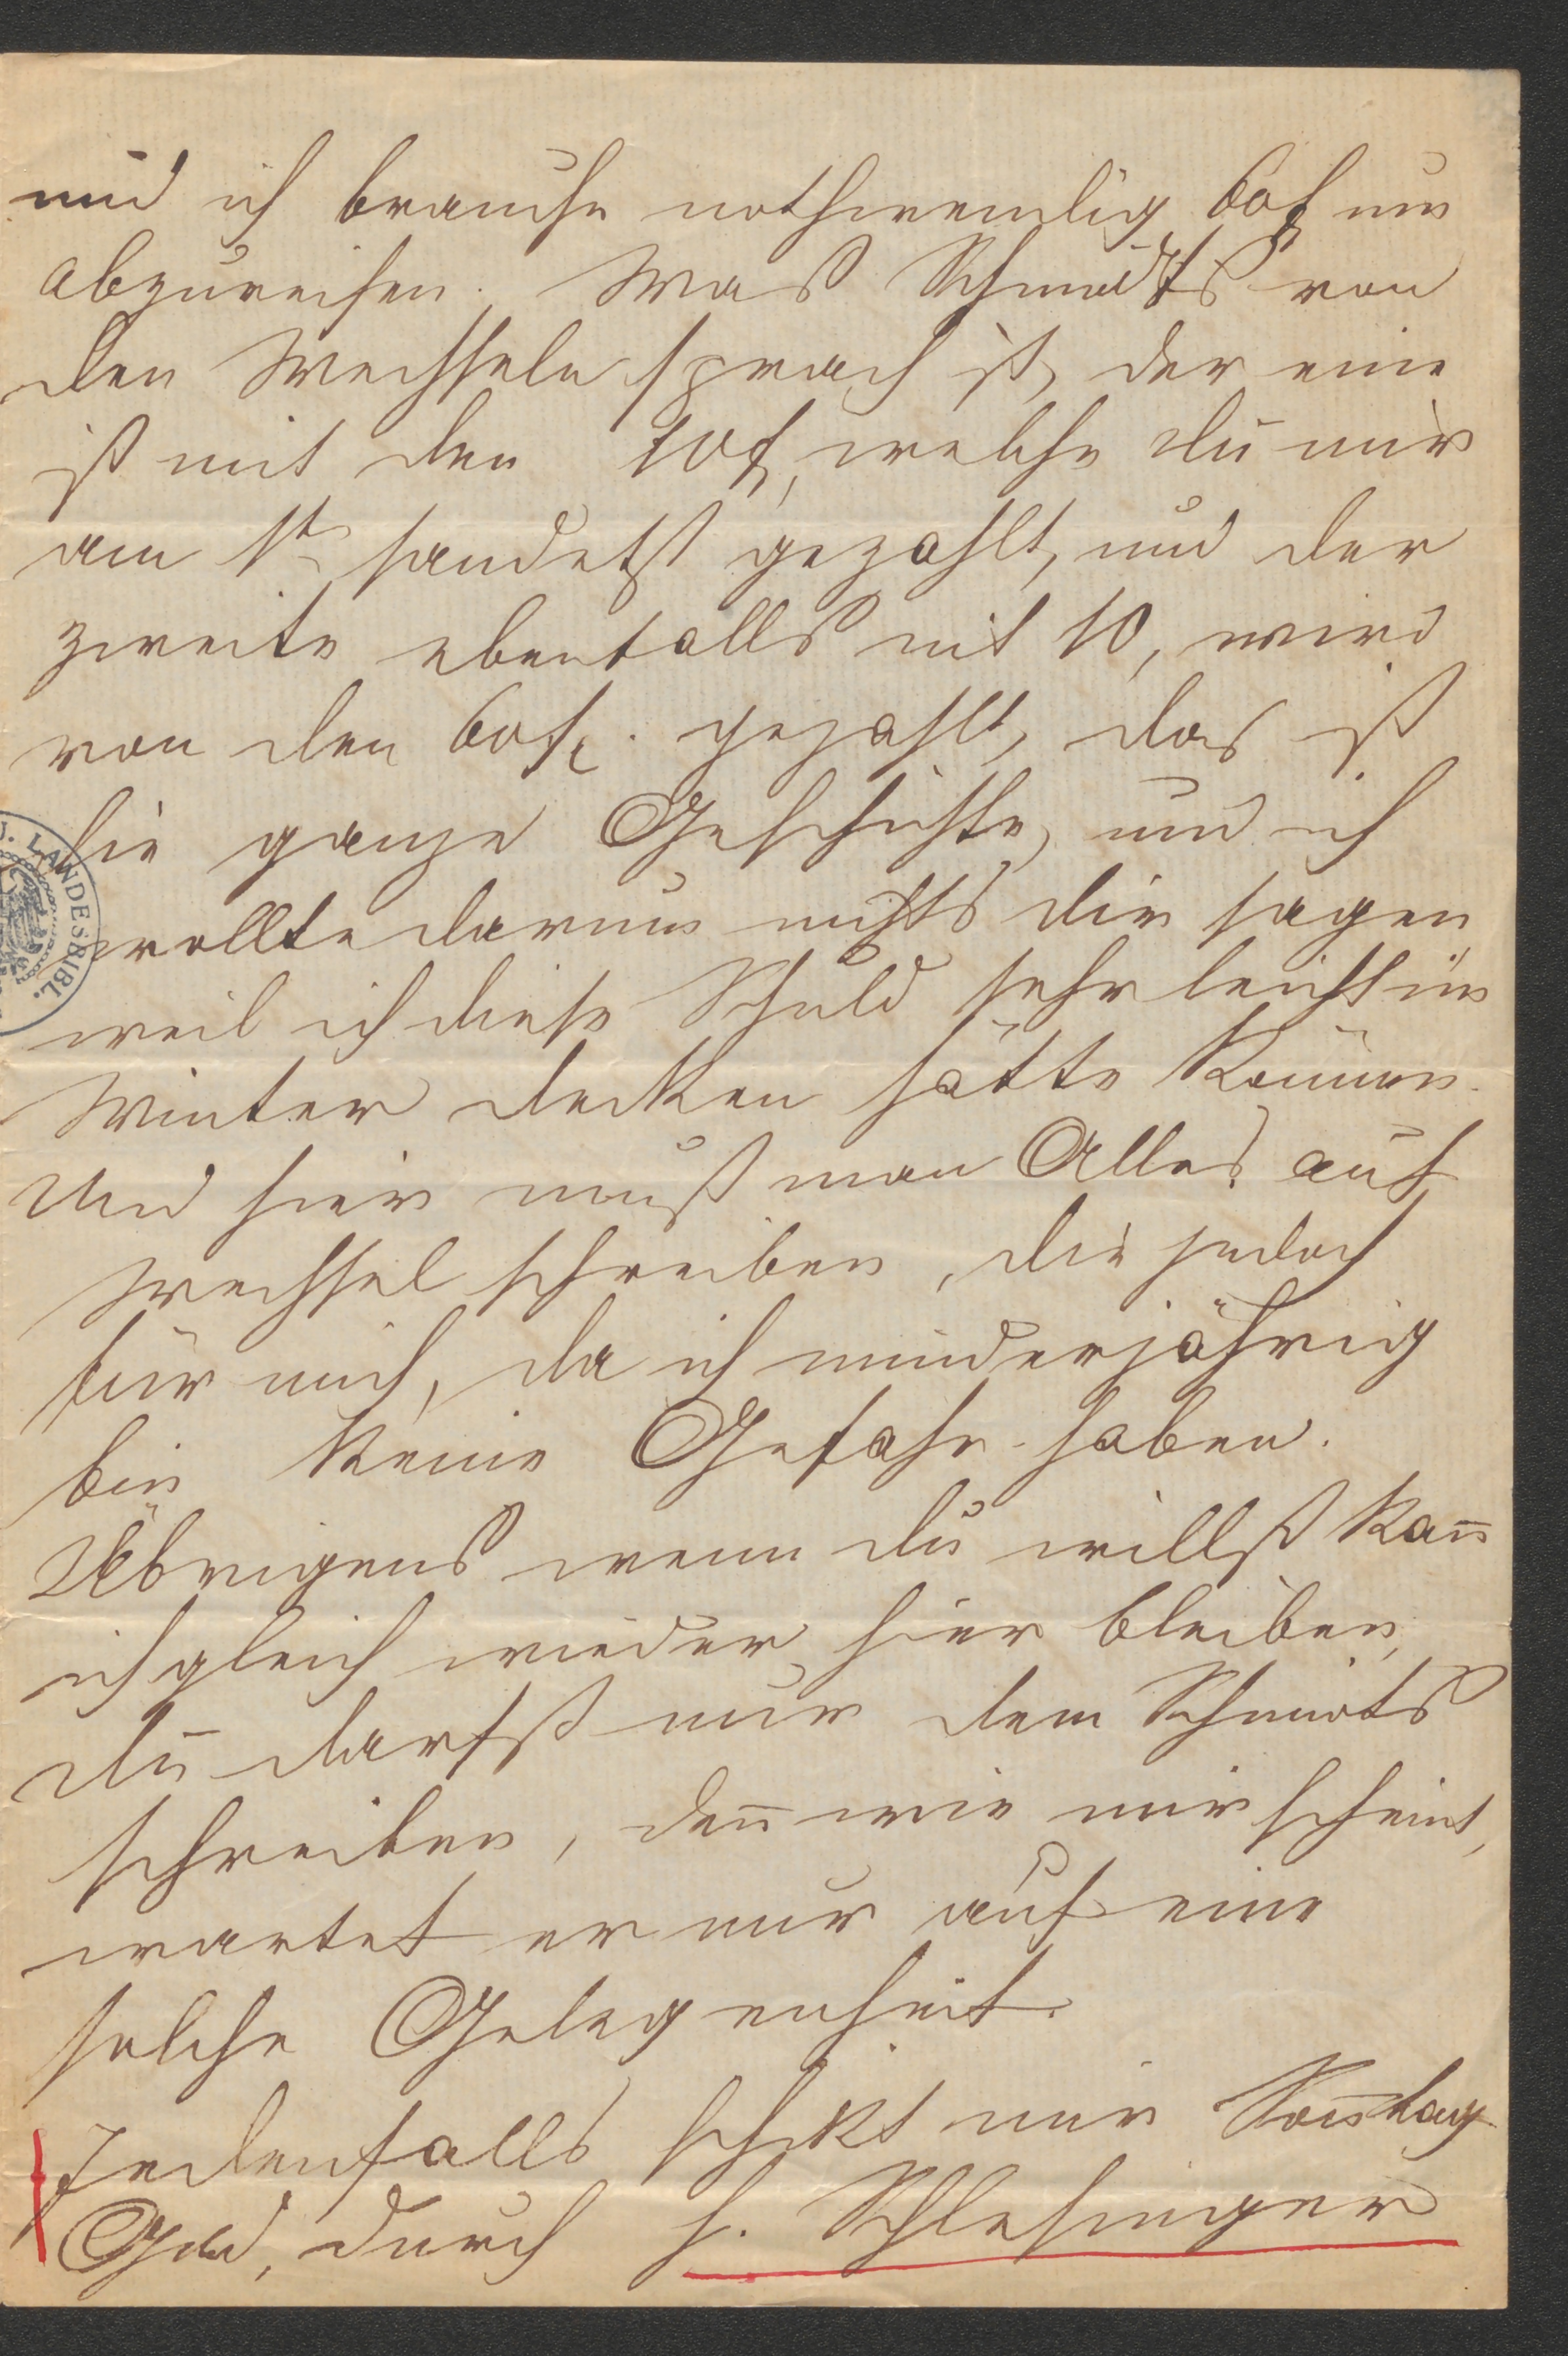 und ich brauche nothwendig 60f um
abzureisen. Was Schmidts von
den Wechseln sprach ist, der eine
ist mit den 10f, welche du mir
am 1t sandetst gezahlt, und der
zweite ebenfalls mit 10, wird
von den 60f. gezahlt, das ist
die ganze Geschichte, und ich
wollte darum nichts dir sagen
weil ich diese Schuld sehr leicht im
Winter decken hätte können.
Und hier muß man Alles auf
Wechsel schreiben, die jedoch
für mich, da ich minderjährig
bin keine Gefahr haben.
Übrigens wenn du willst kan̄
ich gleich wieder hier bleiben,
du darfst nur dem Schmidts
schreiben, den̄ wie mir scheint,
wartet er nur auf eine
solche Gelegenheit.
Jedenfalls schikt mir Son̄tag
Geld, durch H. Schlesinger
J. LANDESBIBL.